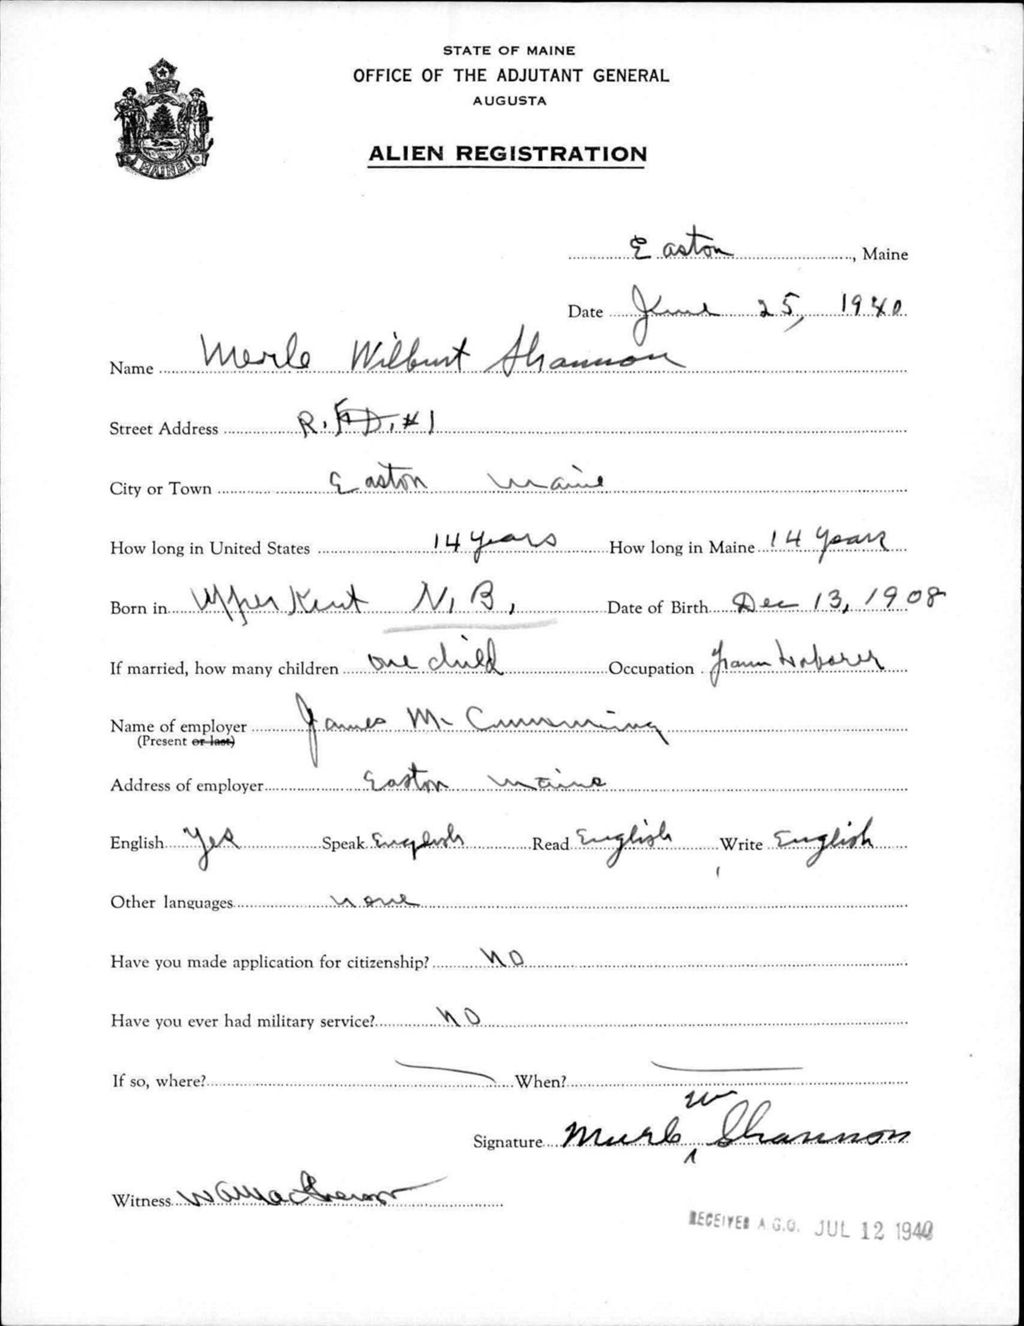 STATE OF MAINE
OFFICE OF THE ADJUTANT GENERAL
AUGUSTA
ALIEN REGISTRATION
MAINE
Easton, Maine
Date June 25, 1940
Name Merle Wilburt Shannon
Street Address R.F.D. #1
City or Town Easton Maine
How long in United States 14 years How long in Maine 14 years
Born in Upper Kent N.B. Date of Birth Dec 13, 1908
If married, how many children one child Occupation Farm Laborer
Name of employer James M Cumming
(Present or last)
Address of employer Easton Maine
English Yes Speak English Read English Write English
Other languages none
Have you made application for citizenship? No
Have you ever had military service? No
If so, where? When?
Signature Merle W Shannon
Witness
RECEIVED A.G.O. JUL 12 1940